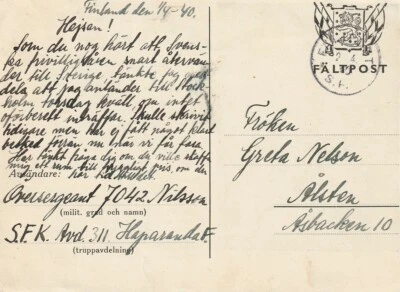 Finland den 1/4-40.
Hejsan!
Som du nog hört att Svens-
ka frivilligkåren snart återvän-
der till Sverige tänkte jag med-
dela att jag anländer till Stock-
holm torsdag kväll om intet
oförberett inträffar. Skulle skrivit
tidigare men har ej fått något klart
besked förrän nu när vi får fara.
Har tänkt fråga dig om du ville skaffa
mig ett rum till pris, om du
har tid
Avsändare:
Översergeant 7042 Nilsson
(milit. grad och namn)
S.F.K. Avd. 311. Haparanda F.
(truppavdelning)
FÄLTPOST
Fröken
Greta Nelson
Ålsten
Åsbacken 10